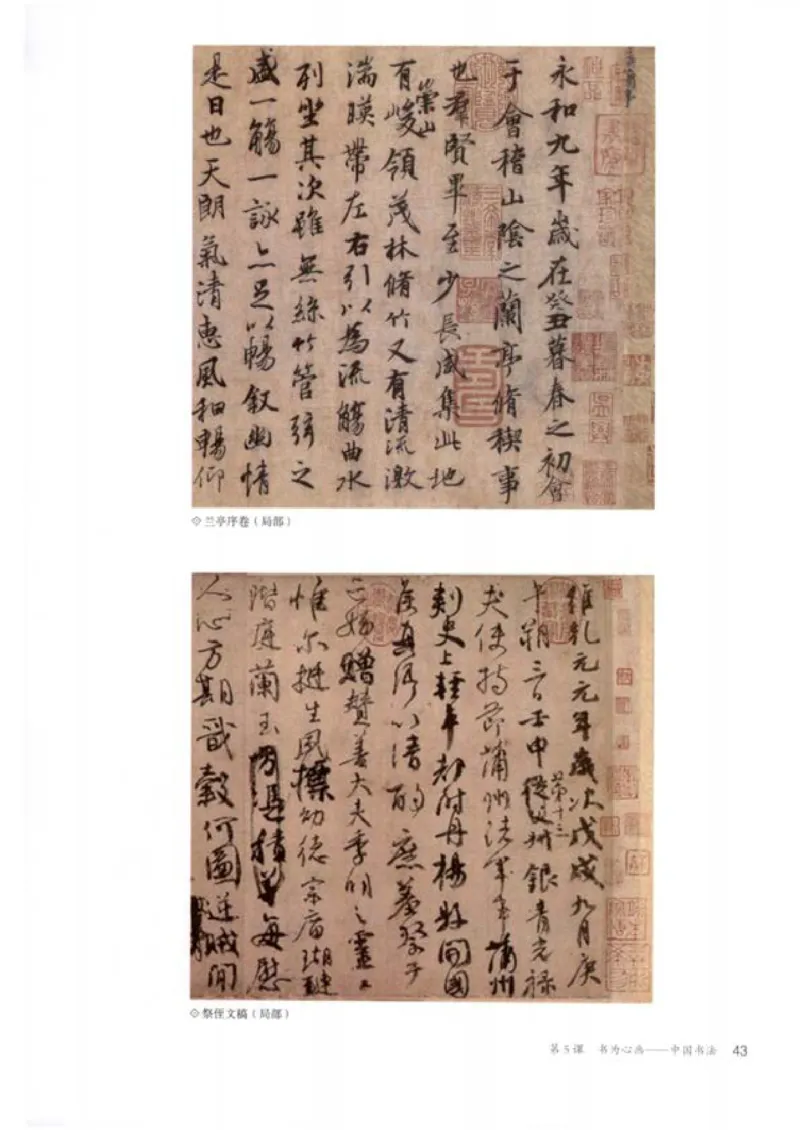 永和九年歲在癸丑暮春之初會
于會稽山陰之蘭亭脩稧事
也羣賢畢至少長咸集此地
有崇山峻領茂林脩竹又有清流激
湍暎帶左右引以為流觴曲水
列坐其次雖無絲竹管弦之
盛一觴一詠亦足以暢敘幽情
是日也天朗氣清惠風和暢仰
兰亭序卷（局部）
維乾元元年歲次戊戌九月庚
午朔三日壬申第十三從父銀青光祿
夫使持節蒲州諸軍事蒲州
刺史上輕車都尉丹楊縣開國
侯真卿以清酌庶羞祭于
亡姪贈贊善大夫季明之靈
惟爾挺生夙標幼德宗廟瑚璉
階庭蘭玉每慰
人心方期戩穀何圖逆賊間
祭侄文稿（局部）
第5课 书为心画——中国书法 43